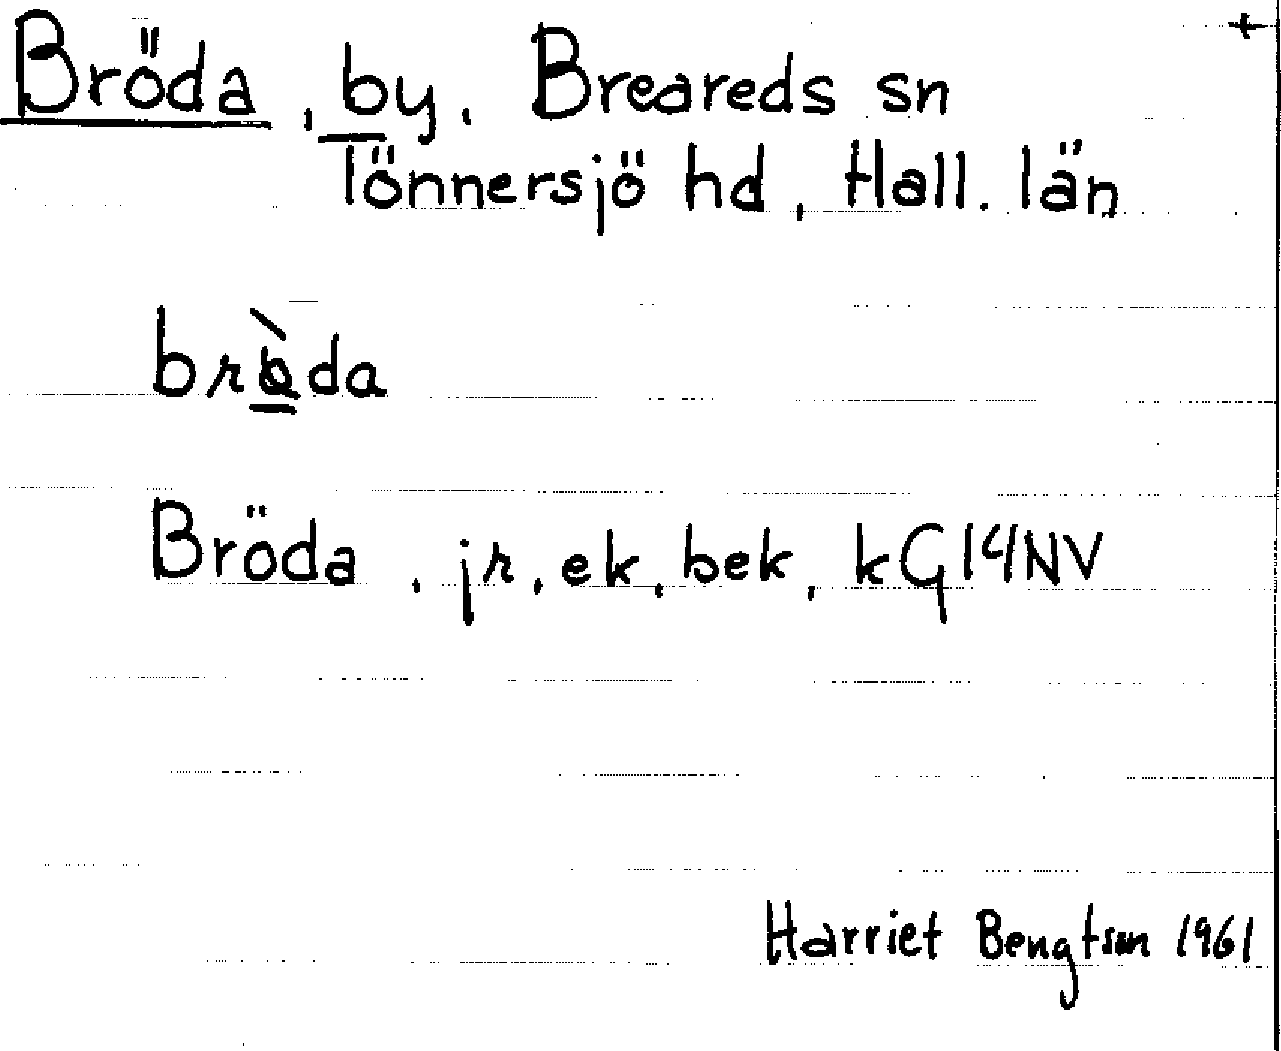 Bröda, by, Breareds sn
Tönnersjö hd, Hall. län
Bröda, jr, ek, bek, kG14NV
Harriet Bengtson 1961